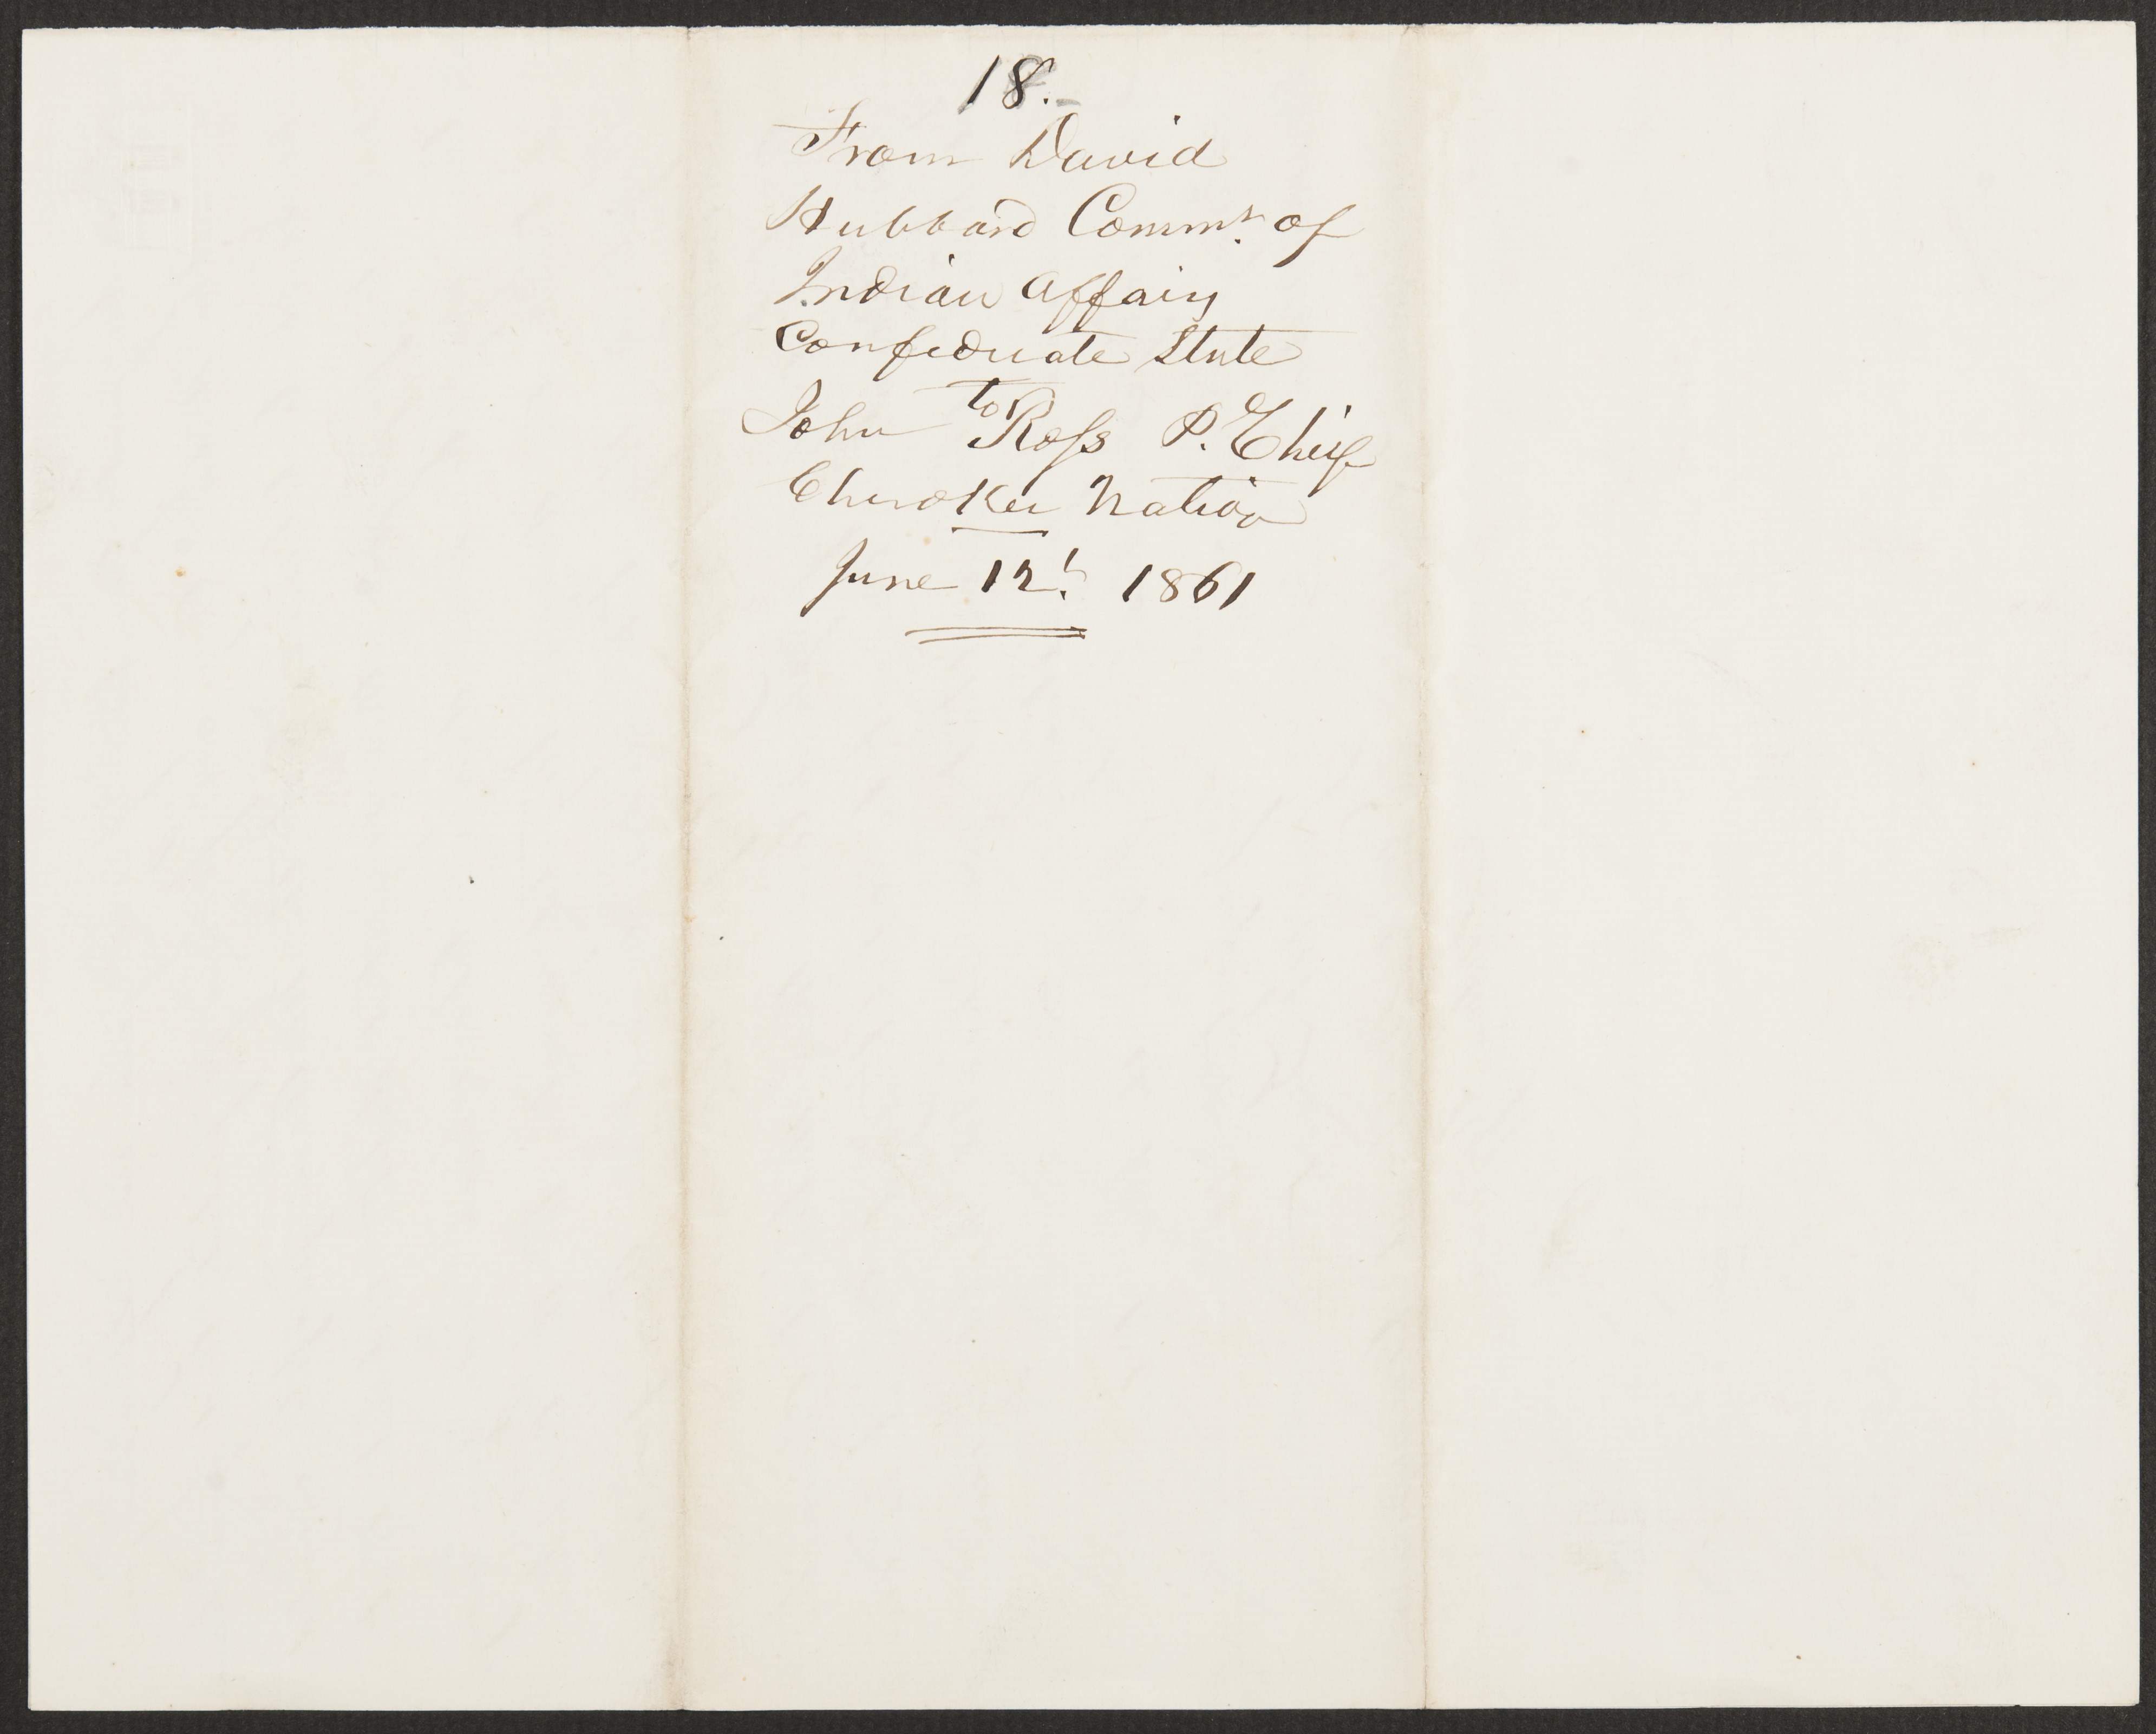 18.
From David
Hubbard Commr. of
Indian Affairs
Confederate State
to
John Ross P. Chief
Cherokee Nation
June 12th 1861